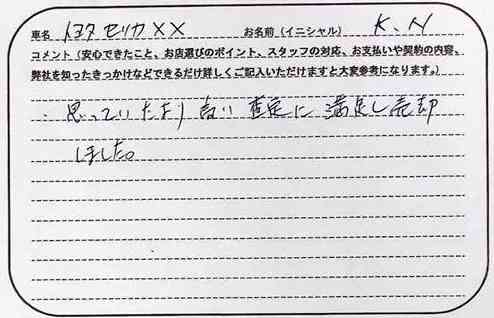 車名 トヨタ セリカXX お名前（イニシャル） K.N
コメント（安心できたこと、お店選びのポイント、スタッフの対応、お支払いや契約の内容、
弊社を知ったきっかけなどできるだけ詳しくご記入いただけますと大変参考になります。）
・思っていたより高い査定に満足し売却
しました。